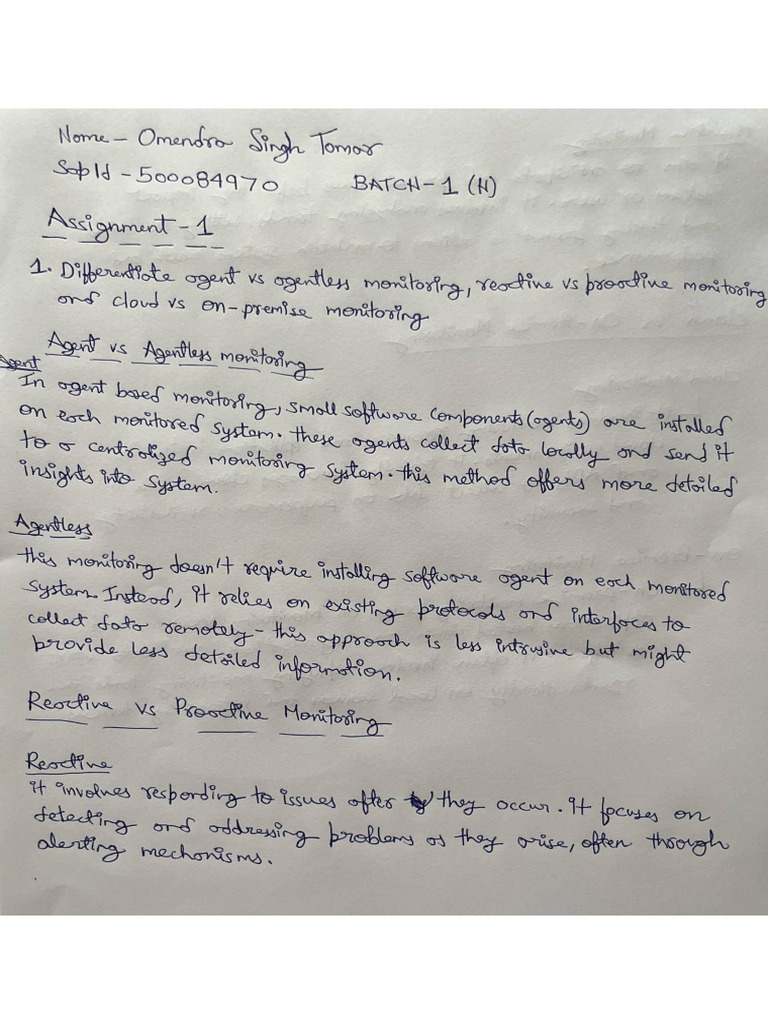 Name - Omendra Singh Tomar
Sap Id - 500084970 BATCH - 1 (H)
Assignment - 1
1. Differentiate agent vs agentless monitoring, reactive vs proactive monitoring
and cloud vs on-premise monitoring
Agent vs Agentless monitoring
Agent
In agent based monitoring, small software components (agents) are installed
on each monitored system. these agents collect data locally and send it
to a centralized monitoring system. this method offers more detailed
insights into system.
Agentless
this monitoring doesn't require installing software agent on each monitored
system. Instead, it relies on existing protocols and interfaces to
collect data remotely - this approach is less intrusive but might
provide less detailed information.
Reactive vs Proactive Monitoring
Reactive
it involves responding to issues after they occur. it focuses on
detecting and addressing problems as they arise, often through
alerting mechanisms.